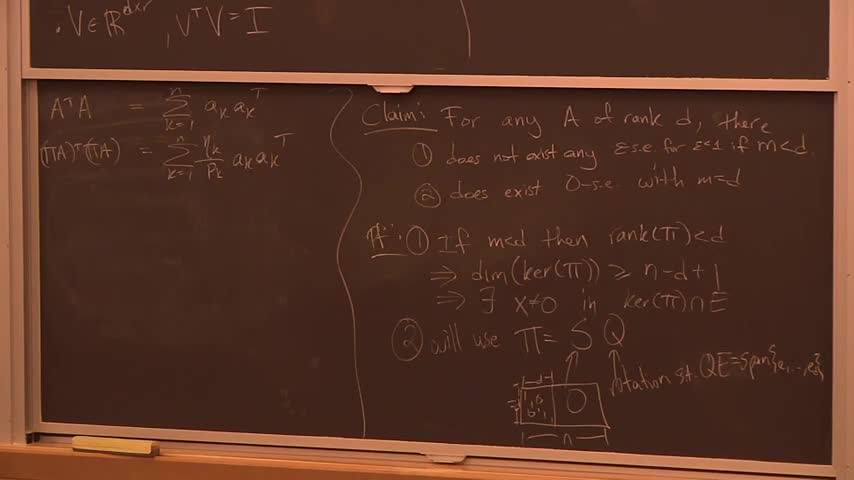 . V ∈ ℝ^{d×r} , V^T V = I
A^T A = Σ_{k=1}^{n} a_k a_k^T
(ΠA)^T (ΠA) = Σ_{k=1}^{n} η_k/p_k a_k a_k^T
Claim: For any A of rank d, there
① does not exist any ε-s.e. for ε<1 if m<d.
② does exist 0-s.e. with m=d
Pf: ① If m<d then rank(Π)<d
⇒ dim(ker(Π)) ≥ n-d+1
⇒ ∃ x≠0 in ker(Π)∩E
② will use Π = S Q
rotation s.t. QE=span{e_1,...,e_d}
d
0
n